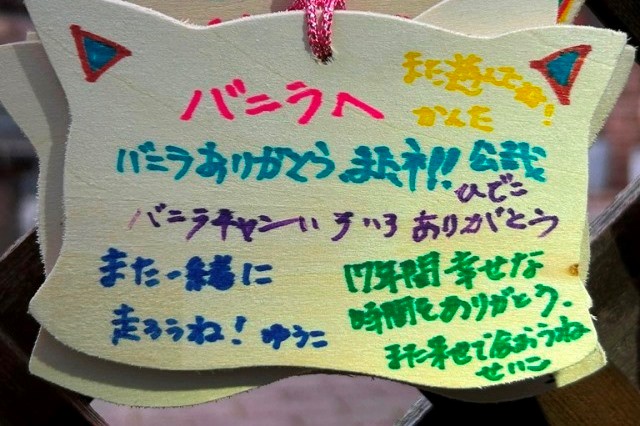 バニラへ
また遊んでね!
かんた
バニラありがとう、またネ!! 公哉
ひでこ
バニラチャンいろいろありがとう
また一緒に
走ろうね! ゆうこ
17年間幸せな
時間をありがとう。
また来世で会おうね
せいこ